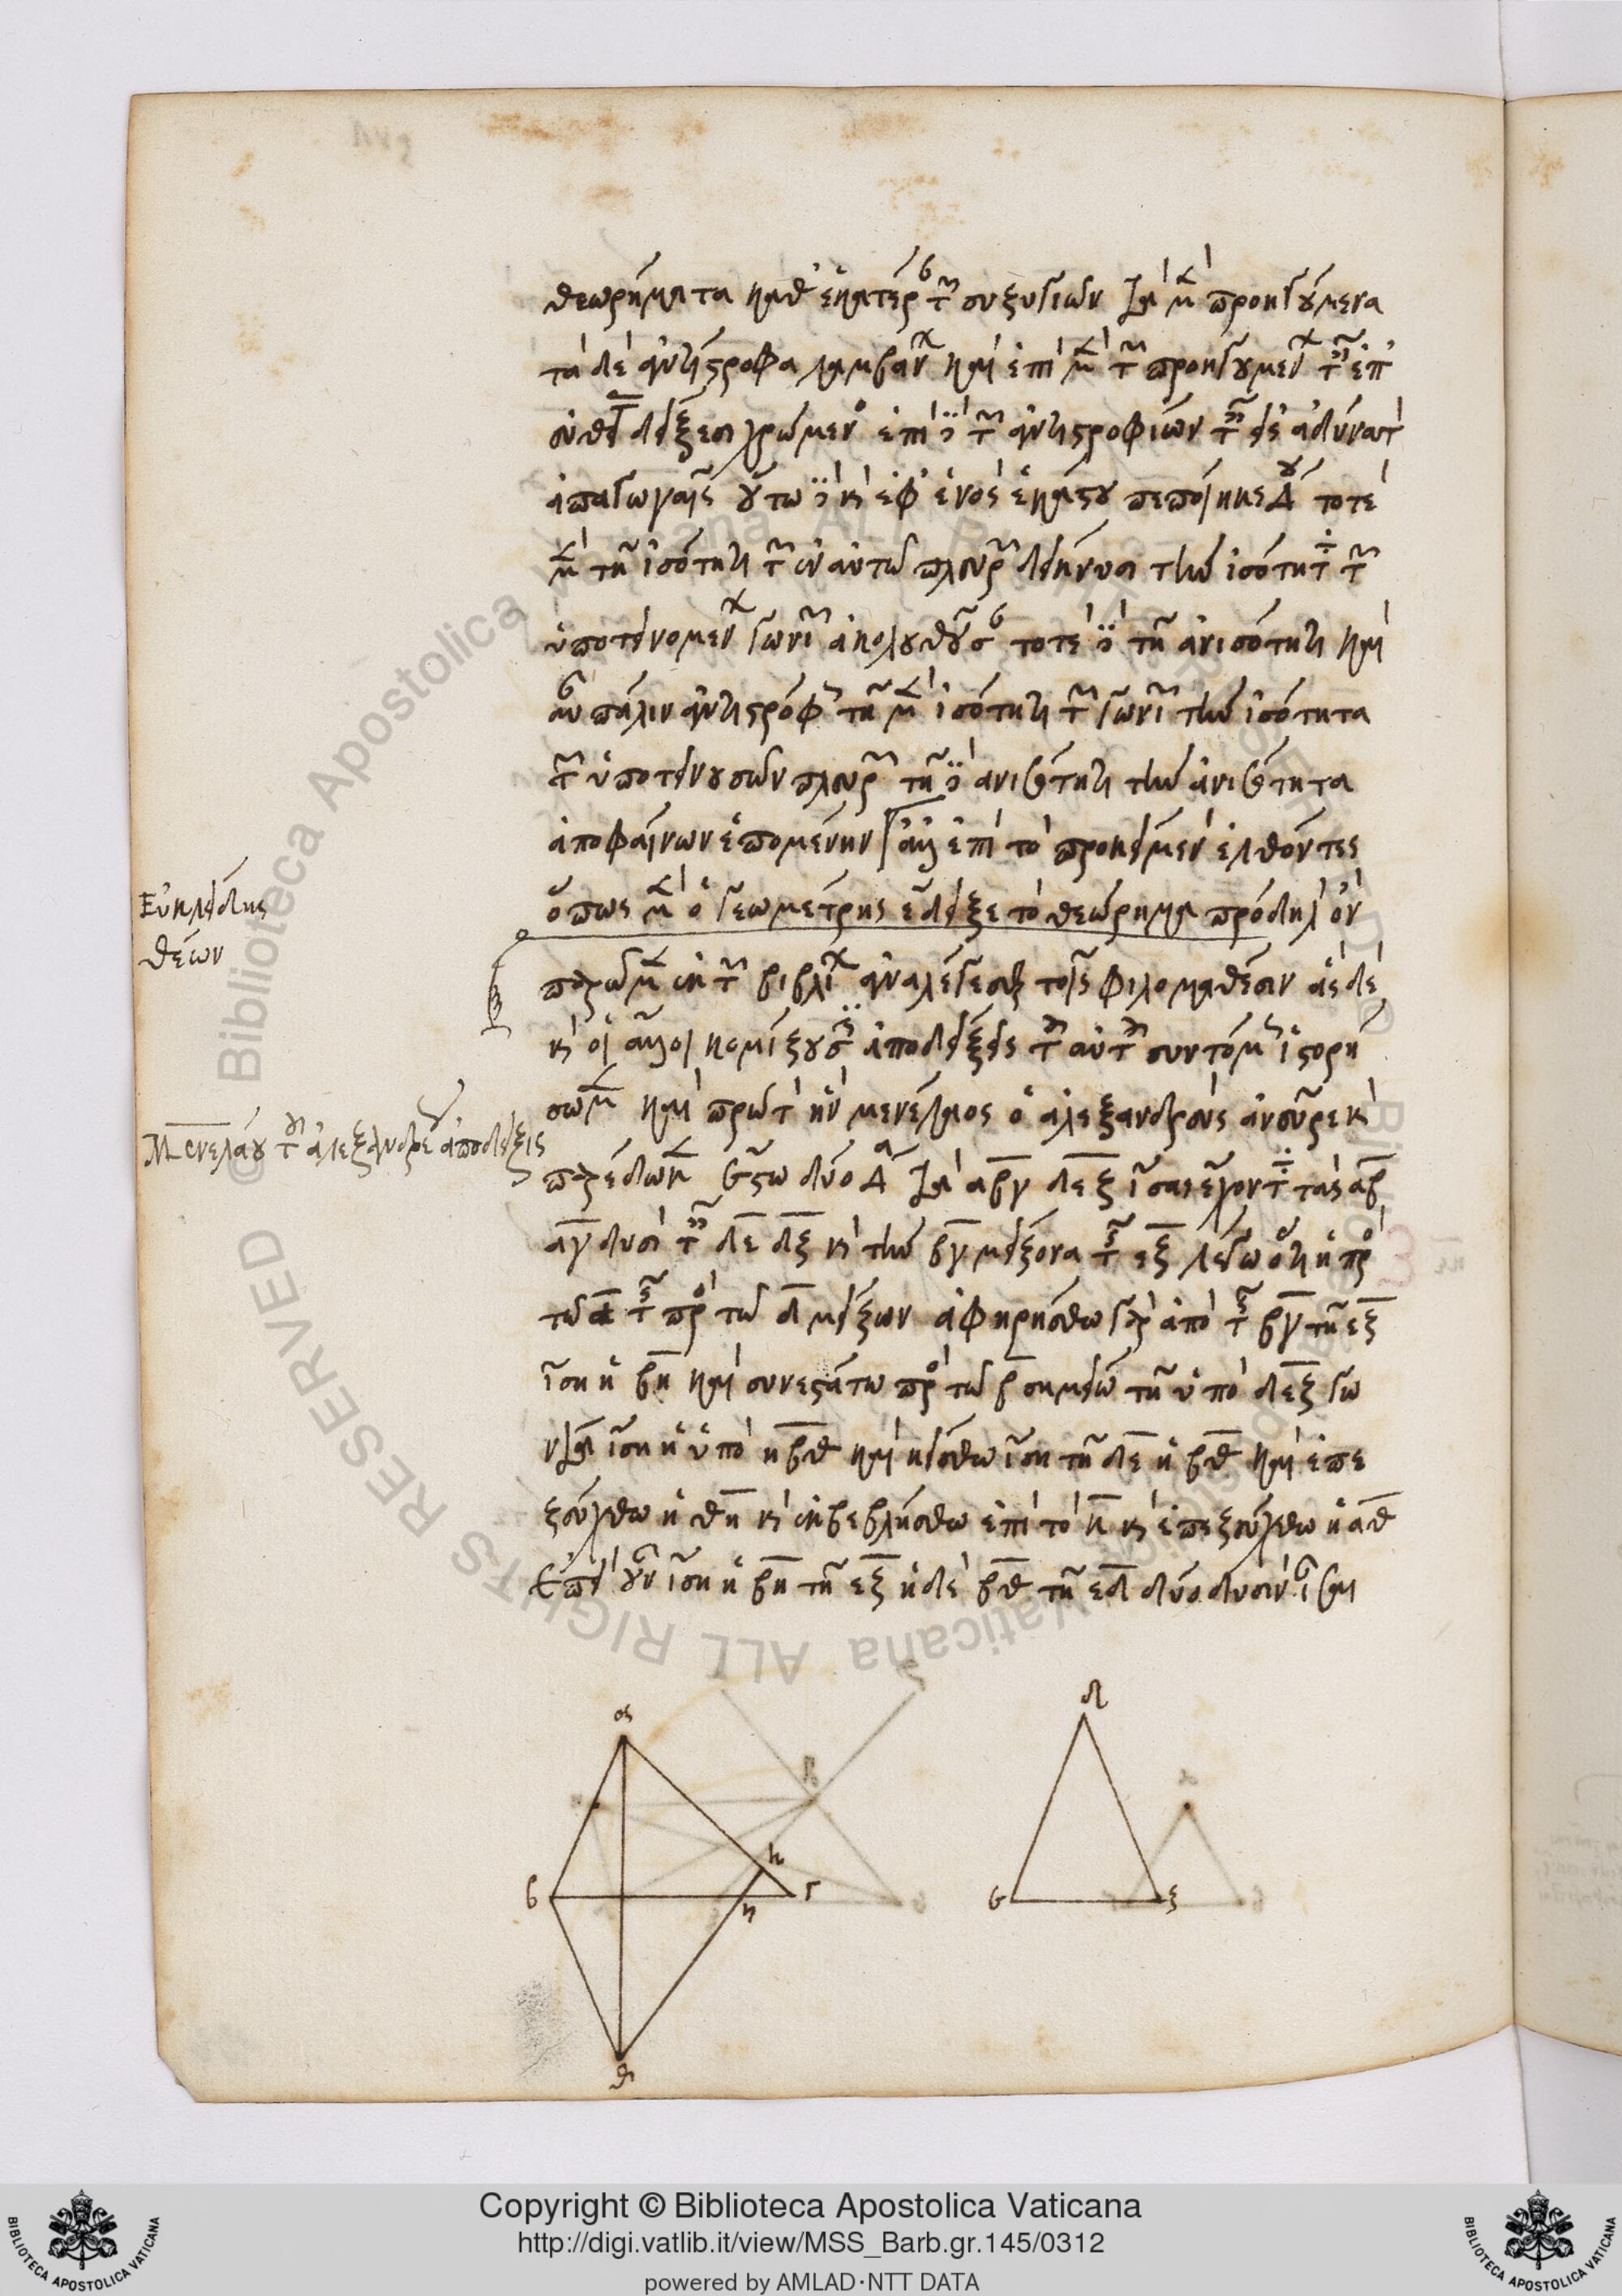 θεωρήματα καθ' ἑκατέραν τῶν συζυγιῶν τὰ μὲν προηγούμενα
τὰ δὲ ἀντίστροφα λαμβάνων καὶ ἐπὶ μὲν τῶν προηγουμένων ταῖς ἐπ'
εὐθείας δείξεσι χρώμενος ἐπὶ δὲ τῶν ἀντιστροφίων ταῖς εἰς ἀδύνατον
ἀπαγωγαῖς οὕτω δὲ καὶ ἐφ' ἑνὸς ἑκάστου πεποίηκε τριγώνου τοτὲ
μὲν τῇ ἰσότητι τῶν ἐν αὐτῷ πλευρῶν δείκνυσι τὴν ἰσότητα τῶν
ὑποτεινομένων γωνιῶν ἀκολουθοῦσαν τοτὲ δὲ τῇ ἀνισότητι καὶ
αὖ πάλιν ἀντιστρόφως τῇ μὲν ἰσότητι τῶν γωνιῶν τὴν ἰσότητα
τῶν ὑποτεινουσῶν πλευρῶν τῇ δὲ ἀνισότητι τὴν ἀνισότητα
ἀποφαίνων ἑπομένην ἀλλ' ἐπὶ τὸ προκείμενον ἐλθόντες
ὅπως μὲν ὁ γεωμέτρης ἔδειξε τὸ θεώρημα πρόδηλον ὂν
παρῶμεν ἐκ τῶν βιβλίων ἀναλέγεσθαι τοῖς φιλομαθέσιν ἃς δὲ
καὶ οἱ ἄλλοι κομίζουσιν ἀποδείξεις τῶν αὐτῶν συντόμως ἱστορή
σωμεν καὶ πρώτην ἣν μενέλαος ὁ ἀλεξανδρεὺς ἀνεῦρε καὶ
παρέδωκεν ἔστω δύο τρίγωνα τὰ αβγ δεζ ἴσας ἔχοντα τὰς αβ
αγ δυσὶ ταῖς δε δζ καὶ τὴν βγ μείζονα τῆς εζ λέγω ὅτι ἡ πρὸς
τῷ α τῆς πρὸς τῷ δ μείζων ἀφῃρήσθω γὰρ ἀπὸ τῆς βγ τῇ εζ
ἴση ἡ βη καὶ συνεστάτω πρὸς τῷ β σημείῳ τῇ ὑπὸ δεζ γω
νίᾳ ἴση ἡ ὑπὸ ηβθ καὶ κείσθω ἴση τῇ δε ἡ βθ καὶ ἐπε
ζεύχθω ἡ θη καὶ ἐκβεβλήσθω ἐπὶ τὸ κ καὶ ἐπεζεύχθω ἡ αθ
ἐπεὶ οὖν ἴση ἡ βη τῇ εζ ἡ δὲ βθ τῇ εδ δύο δυσὶν ἴσαι
Εὐκλείδης
θέων
Μενελάου τοῦ ἀλεξανδρέως ἀπόδειξις
α
β
γ
η
κ
θ
δ
ε
ζ
© Biblioteca Apostolica Vaticana ALL RIGHTS RESERVED
BIBLIOTECA APOSTOLICA VATICANA
Copyright © Biblioteca Apostolica Vaticana
http://digi.vatlib.it/view/MSS_Barb.gr.145/0312
powered by AMLAD·NTT DATA
BIBLIOTECA APOSTOLICA VATICANA